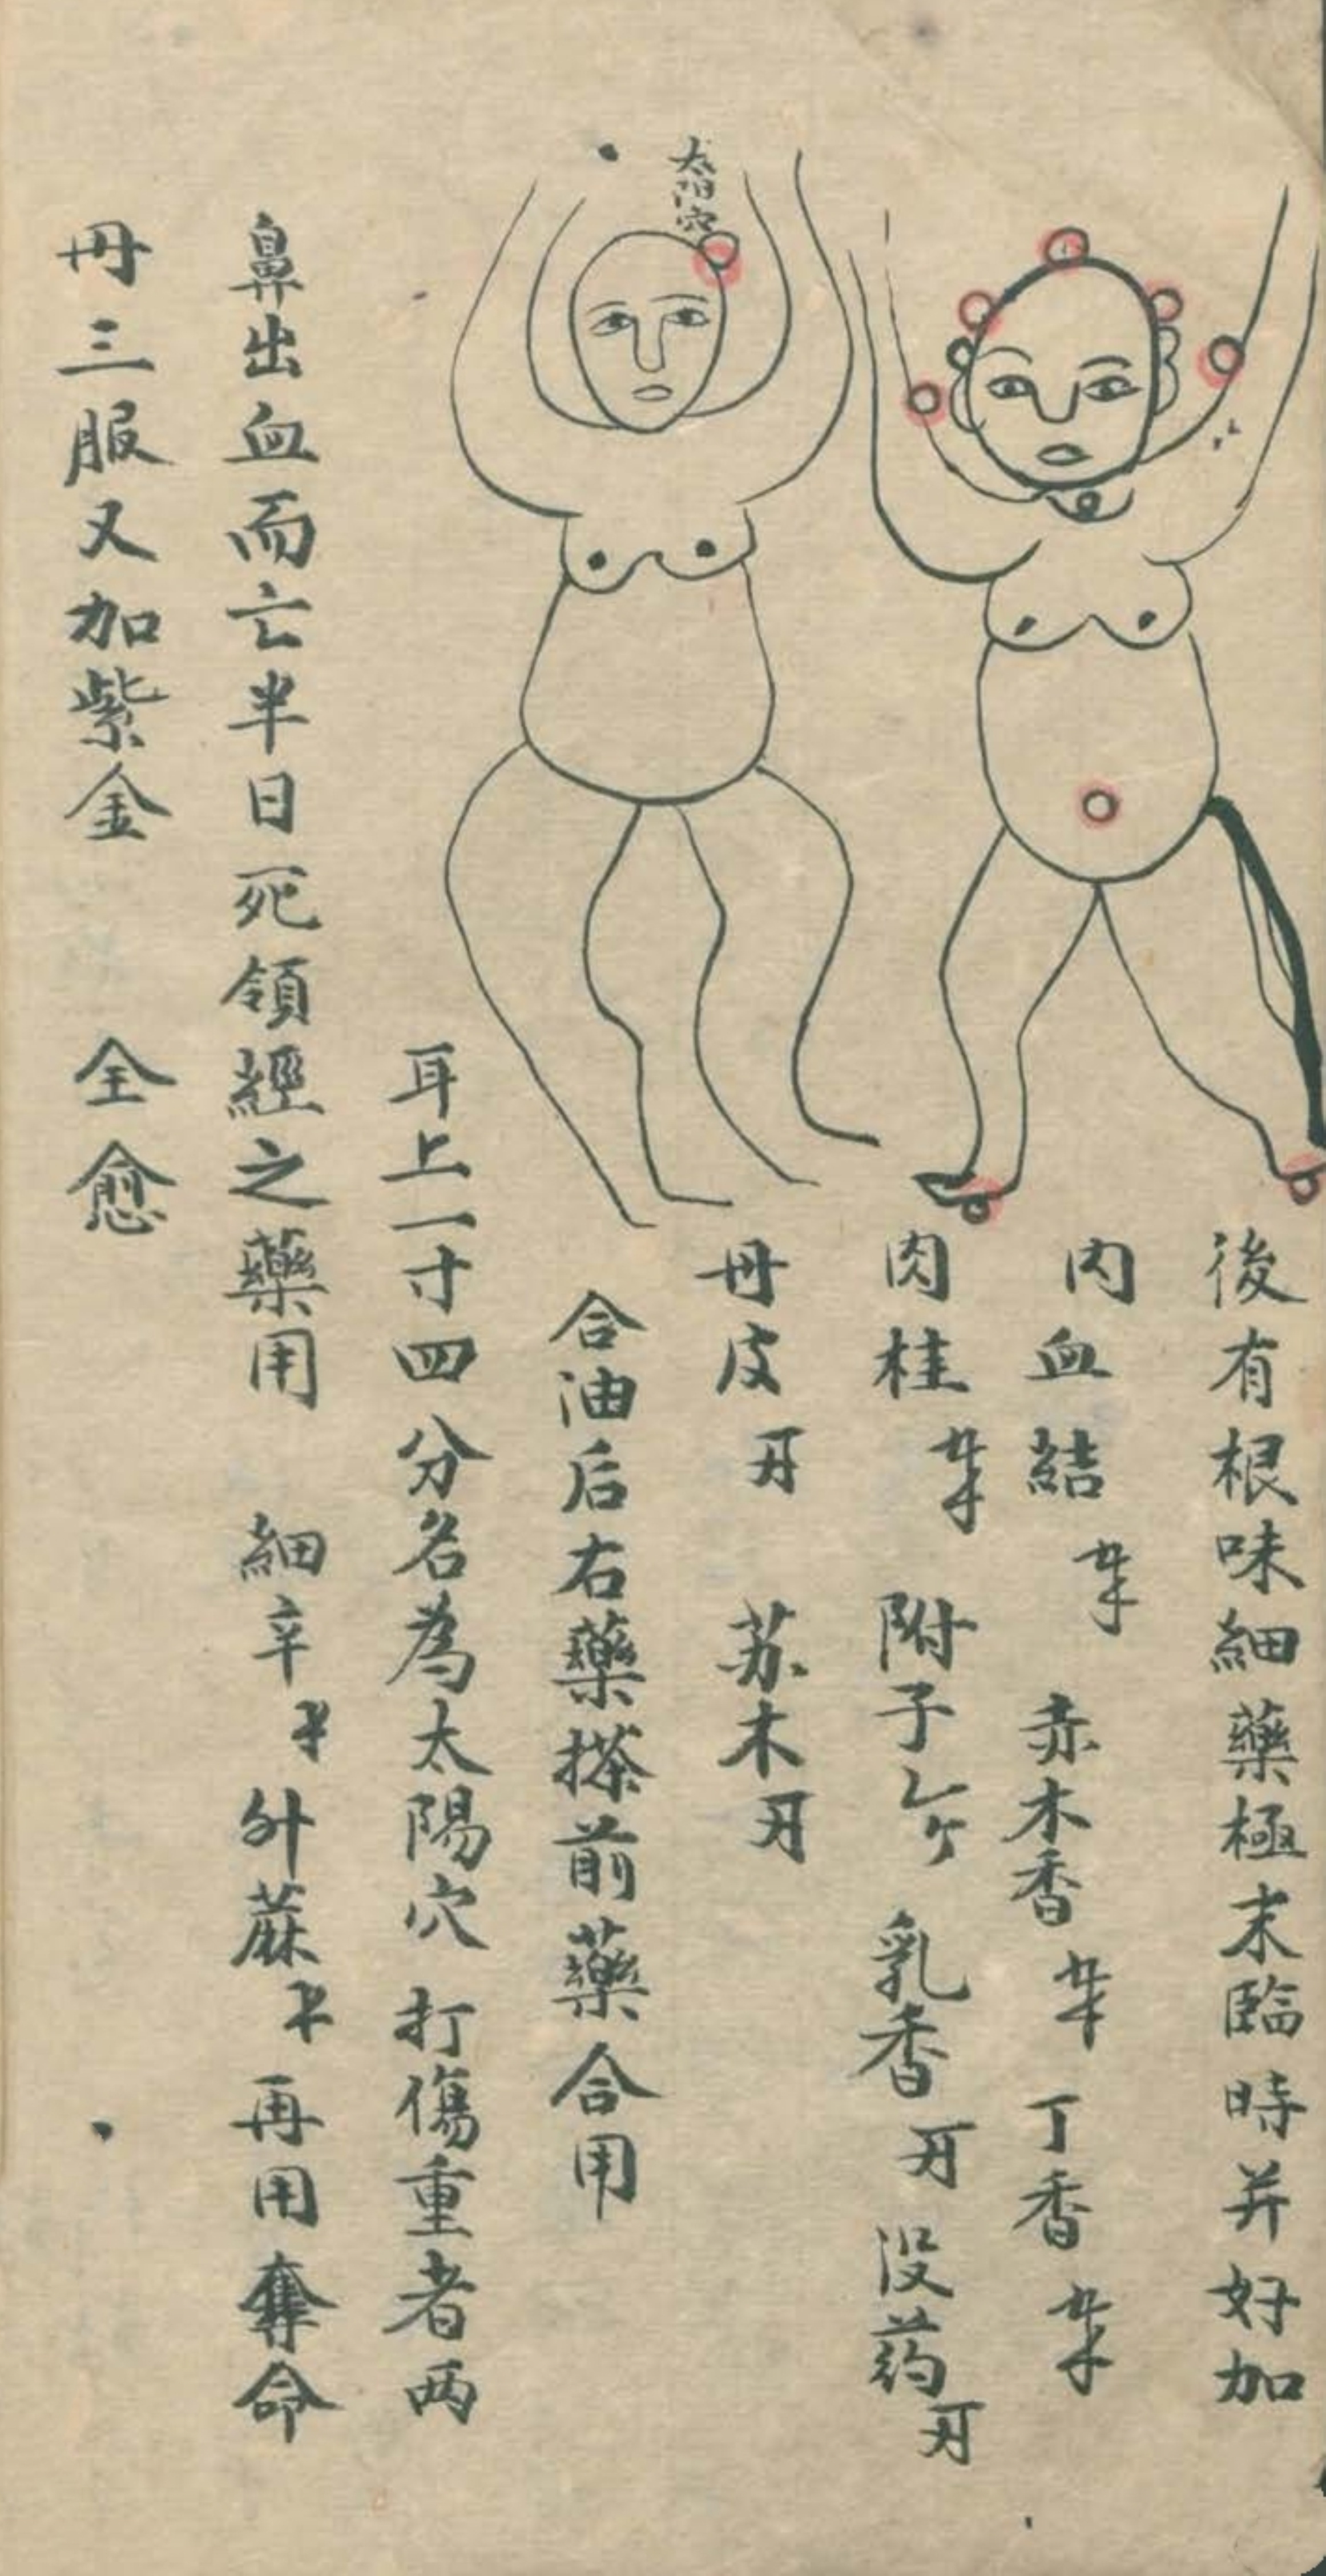 後有根味細藥極末臨時并好加
内血結 赤木香 丁香
肉桂 附子 乳香 没药
丹皮 苏木
合油后右藥搽前藥合用
太阳穴
耳上一寸四分名為太陽穴 打傷重者两
鼻出血而亡半日死領經之藥用 細辛 升蔴 再用奪命
丹三服又加紫金 全愈